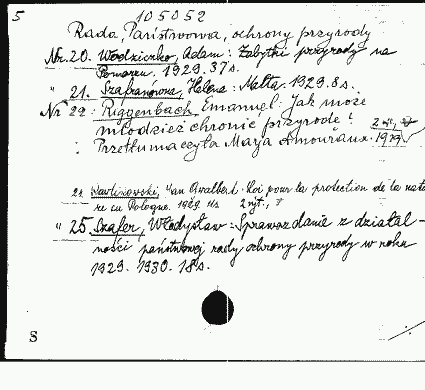 5 105052
Rada Państwowa, ochrony przyrody
Nr. 20. Wodziczko, Adam: Zabytki przyrody na
Pomorzu. 1929. 37 s.
" 21. Szafranówna, Helena: Natta 1929. 8 s.
Nr 22: Riggenbach, Emanuel: Jak może
młodzież chronić przyrodę! 2
Przetłumaczyła Marja 1929
Pawlikowski, Jan Gwalbert. Loi pour la protection de la natu
re en Pologne. 1929.
" 25 Szafer, Władysław: Sprawozdanie z działal-
ności państwowej rady ochrony przyrody w roku
1929. 1930. 18 s.
S